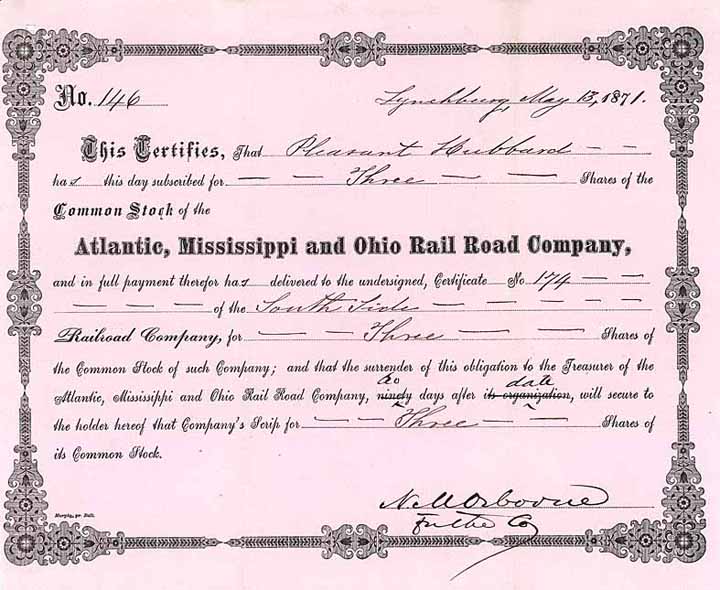 No. 146
Lynchburg, May 13, 1871.
This Certifies, That Pleasant Hubbard — —
has this day subscribed for — — Three — — — Shares of the
Common Stock of the
Atlantic, Mississippi and Ohio Rail Road Company,
and in full payment therefor has delivered to the undersigned, Certificate No 174 — —
— — — — of the South Side — — — — —
Railroad Company, for — — Three — — Shares of
the Common Stock of such Company; and that the surrender of this obligation to the Treasurer of the
60 date
Atlantic, Mississippi and Ohio Rail Road Company, ninety days after its organization, will secure to
the holder hereof that Company's Scrip for — — Three — — Shares of
its Common Stock.
For the Co
Murphy, pr. Balt.